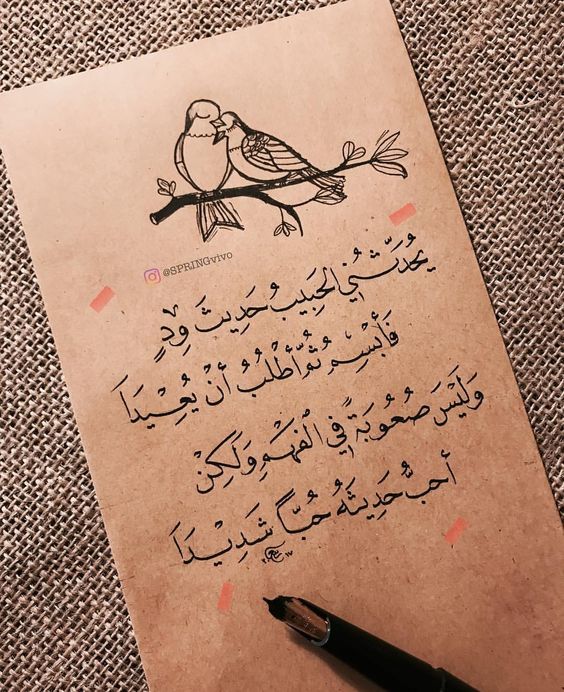 @SPRINGvivo
يُحَدِّثُنِي الحَبِيبُ حَدِيثَ وِدٍّ
فَأَبْسِمُ ثُمَّ أَطْلُبُ أَنْ يُعِيْدَا
وَلَيْسَ صُعُوبَةً فِي الْفَهْمِ وَلَكِنْ
أُحِبُّ حَدِيثَهُ حُبًّا شَدِيْدَا